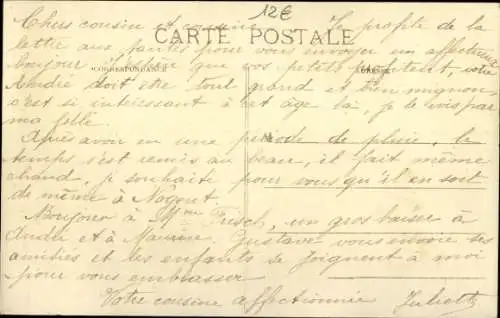 12€
Chers cousin et cousine Je profite de la
CARTE POSTALE
lettre aux tantes pour vous envoyer un affectueux
CORRESPONDANCE ADRESSE
bonjour J'espère que vos petits profitent, votre
André doit être tout grand et bien mignon,
c'est si intéressant à cet âge là, je le vois par
ma fille.
Après avoir eu une période de pluie, le
temps s'est remis au beau, il fait même
chaud, je souhaite pour vous qu'il en soit
de même à Nogent.
Bonjour à Mme Fresch, un gros baiser à
André et à Maurice. Gustave vous envoie ses
amitiés et les enfants se joignent à moi
pour vous embrasser
Votre cousine affectionnée Juliette